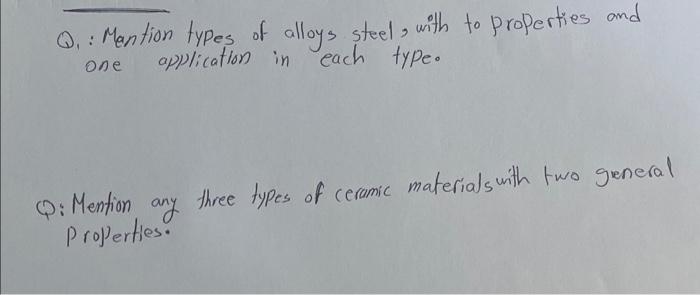 Q1: Mention types of alloys steel, with to properties and
one application in each type.
Q: Mention any three types of ceramic materials with two general
Properties.